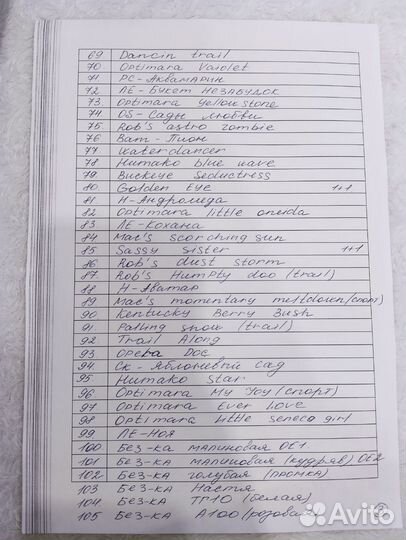 69 Dancin trail
70. Optimara Vaiolet
71. РС-Аквамарин
72 ЛЕ-Букет Незабудок
73. Optimara Yellowstone
74. OS-Сады любви
75. Rob's astro zombie
76. Ват-Пион
77. Waterdancer
78 Humako blue wave
79. Buckeye Seductress
80. Golden Eye 1+1
81 Н-Андромеда
82 Optimara little oneida
83 ЛЕ-Кохана
84 Mac's scorching sun
85 Sassy Sister 1+1
86 Rob's dust storm
87 Rob's Humpty doo (trail)
88 Н-Аватар
89 Mac's momentary meltdown (спорт)
90 Kentucky Berry Bush
91 Falling snow (trail)
92 Trail Along
93 Opera Doc
94. СК-Яблоневый сад
95 Humako Star
96 Optimara My Joy (спорт)
97 Optimara Ever Love
98 Optimara Little Seneco girl
99 ЛЕ-Ноя
100 Без-ка малиновая ОС1
101 Без-ка малиновая (кудряв) ОС2
102 Без-ка голубая (ромка)
103 Без-ка Настя
104. Без-ка ТГ10 (белая)
105 Без-ка А100 (розовая)
Avito